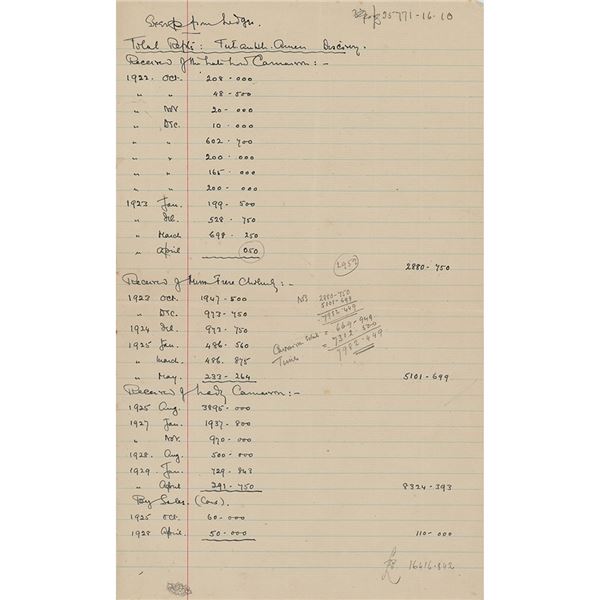 £25771-16-10
Excerpt from Ledger.
Total Rcpts: Tut.ankh.Amen Discovery.
Received of the late Lord Carnarvon :-
1922. Oct. 208 - 000
" " 48 - 500
" Nov 20 - 000
" Dec. 10 - 000
" " 602 - 700
" " 200 - 000
" " 165 - 000
" " 200 - 000
1923 Jan. 199 - 500
" Feb. 528 - 750
" March 698 - 250
" April 050
2952
2880 - 750
Received of Messrs Frere Cholmely :-
1923 Oct. 1947 - 500
" Dec. 973 - 750
1924 Feb. 972 - 750
1925 Jan. 486 - 560
" March. 486 - 875
" May. 233 - 264
5101 - 699
NB 2880-750
5101-699
7982-449
Carnarvon = 669-949
= 7312-500
7982-449
Received of Lady Carnarvon :-
1925 Aug. 3895 - 000
1927 Jan. 1937 - 800
" Nov. 970 - 000
1928. Aug. 500 - 000
1929. Jan. 729 - 843
" April 291 - 750
8324 - 393
By Sales. (Cars).
1925 Oct. 60 - 000
1928 April. 50 - 000
110 - 000
16416.842